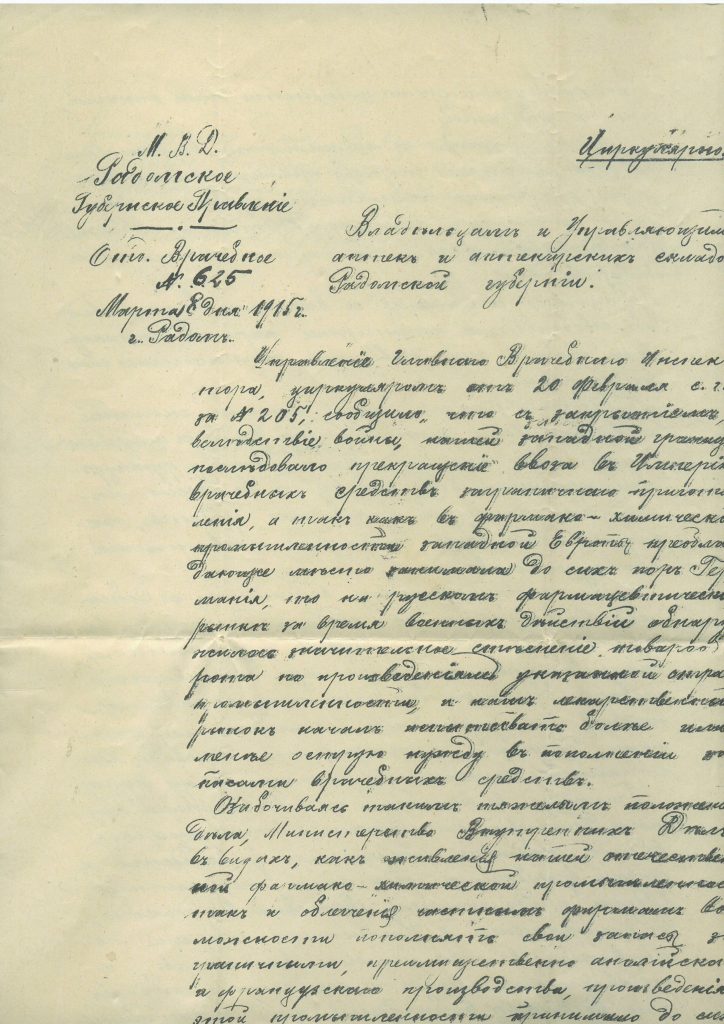 М. В. Д.
Радомское
Губернское Правленіе
Отд. Врачебное
№ 625
Марта 8 дня 1915 г.
г. Радомъ.
Циркулярно.
Владѣльцамъ и Управляющим
аптекъ и аптекарскихъ складо
Радомской губерніи.
Управленіе Главнаго Врачебнаго Инспек
тора, циркуляромъ отъ 20 Февраля с. г.
за № 205, сообщило, что съ закрытіемъ,
вслѣдствіе войны, нашей западной границ
послѣдовало прекращеніе ввоза въ Импері
врачебныхъ средствъ заграничнаго пригото
ленія, а такъ какъ въ фармако-химическо
промышленности западной Европы преобла
дающее мѣсто занимала до сихъ поръ Гер
манія, то на русскомъ фармацевтическ
рынкѣ за время военныхъ дѣйствій обнару
жилось значительное стѣсненіе товароо
рота по произведеніямъ указанной отра
промышленности, и нашъ лекарственны
рынокъ началъ испытывать болѣе или
менѣе острую нужду въ пополненіи за
пасами врачебныхъ средствъ.
Озабочиваясь такимъ тяжелымъ положен
дѣла, Министерство Внутреннихъ Дѣл
въ видахъ, какъ оживленія нашей отечестве
ной фармако-химической промышленнос
такъ и облегченія частнымъ фирмамъ воз
можности пополнять свои запасы за
граничными, преимущественно англійско
и французскаго производства, произведенія
этой промышленности принимало до си